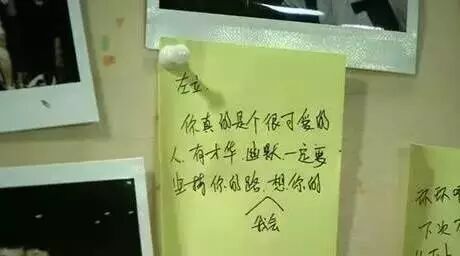 左立,
你真的是个很可爱的
人.有才华.幽默.一定要
坚持你的路.想你的
我会
环环
下次